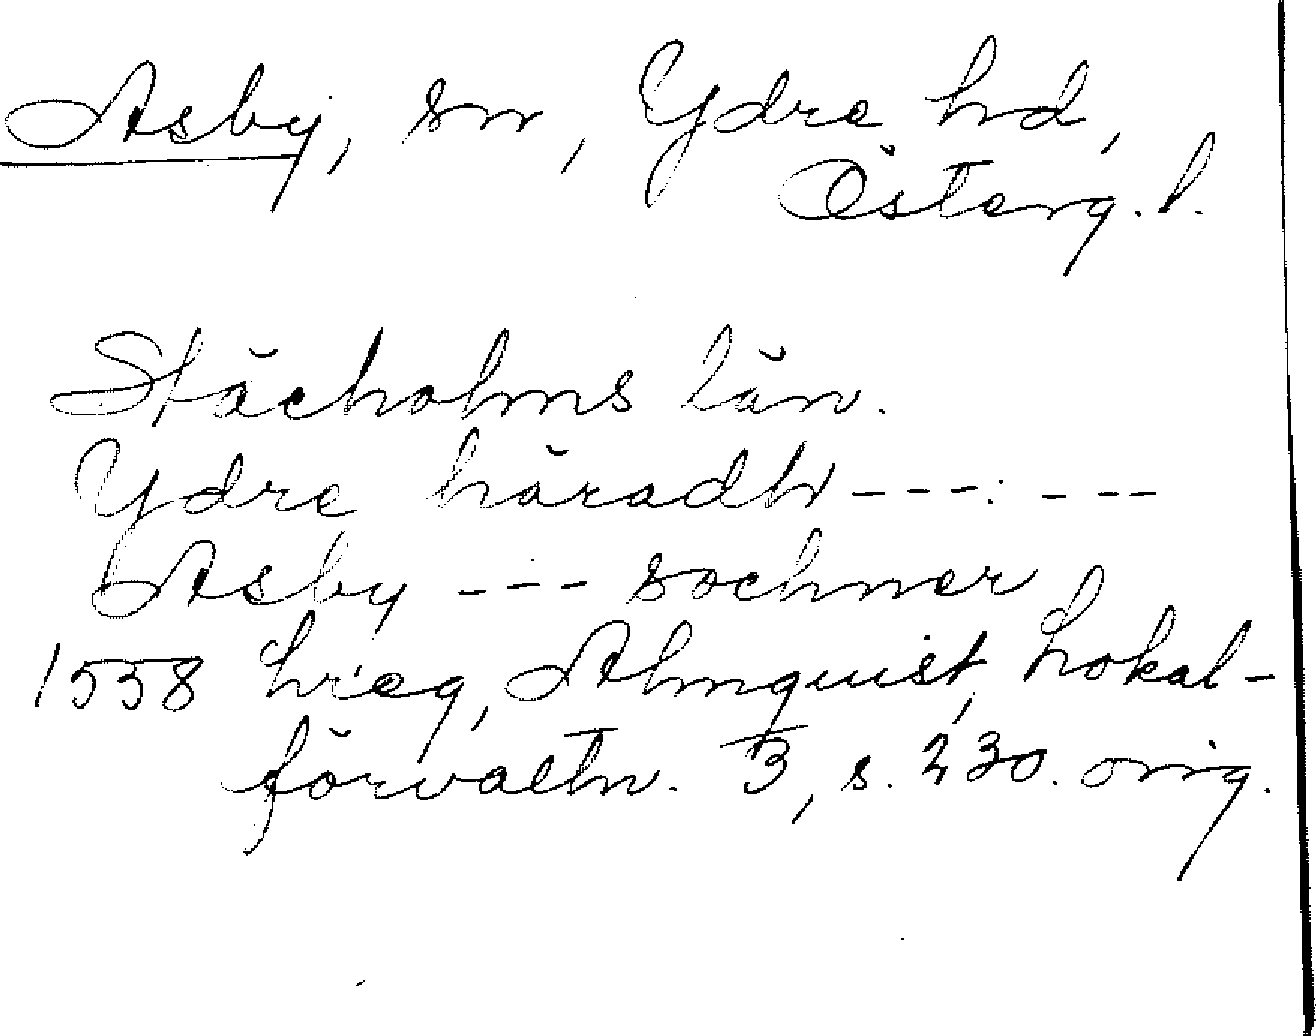 Asby, sn, Ydre hd,
Österg. l.
Stächolms län.
Ydre häradh ---:---
Asby --- sochner
1558 hreg, Almquist, Lokal-
förvaltn. 3, s. 230. orig.